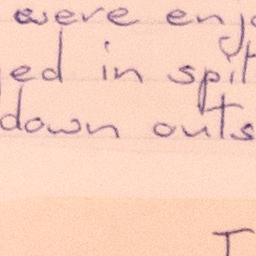 were enj
ed in spit
down outs
I